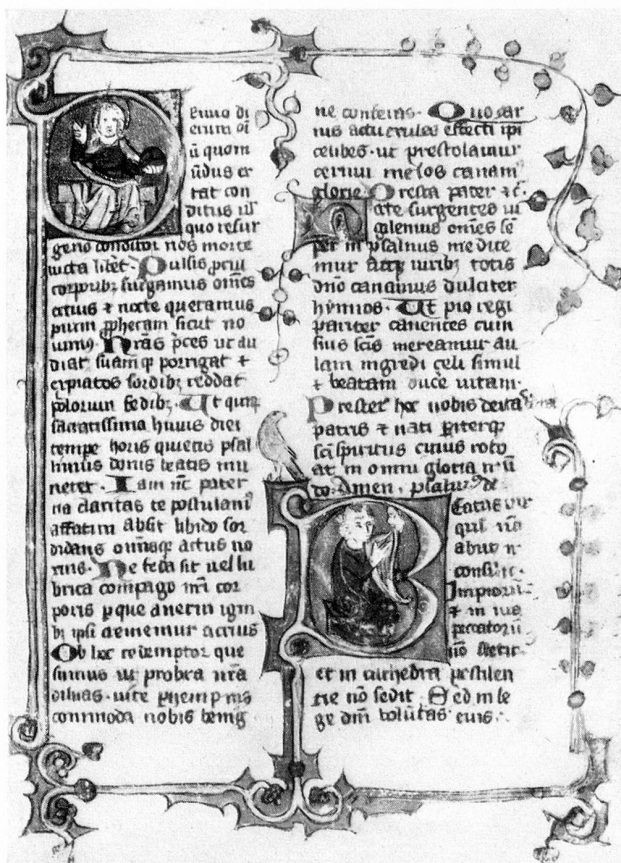 Rimo di
erum oī
ū quom
ūdus ex
tat con
ditus ul̄
quo resur
gens conditor nos morte
uicta liberet. Pulsis procul
torporibꝫ surgamus om̄es
ocius ⁊ nocte queramus
pium ꝓphetam sicut no
uimꝰ. Nr̄as p̄ces ut au
diat suamqꝫ porrigat ⁊
expiatos sordibꝫ reddat
polorum sedibꝫ. Ut quiqꝫ
sacratissima huius diei
tempe horis quietis psal
limus donis beatis mu
neret. Iam nc̄ pater
na claritas te postulamꝰ
affatim absit libido sor
didans omisqꝫ actus no
xius. Ne feda sit uel lu
brica compago nr̄i cor
poris ꝑ que auerni igni
bꝫ ipsi crememur acrius
Ob hoc redemptor que
sumus ut probra nr̄a
diluas. uite ꝑhempnis
commoda nobis benig
ne conferas. Quo car
nis actu exules effecti ipi
celibes. ut prestolamur
cernui melos canamꝰ
glorie. Presta pater ⁊c̄.
Nocte surgentes ui
gilemus om̄es se
per in psalmis medite
mur atqꝫ uiribꝫ totis
dn̄o canamus dulciter
hymnos. Ut pio regi
pariter canentes cum
suis scīs mereamur au
lam ingredi celi simul
⁊ beatam duce uitam.
Prestet hoc nobis deitas
patris ⁊ nati ꝑiterqꝫ
scī spiritus cuius rebo
at in omni gloria mū
do. Amen.
Beatus vir
qui nō
abiit ī
consilio
Impiorū
⁊ in uia
peccatorū
nō stetit
et in cathedra pestilen
tie nō sedit. Sed in le
ge dn̄i uolūtas eius.